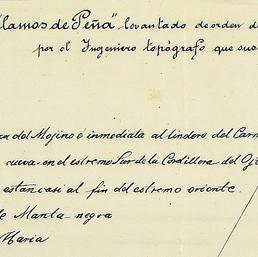 Alamos de Peña" levantado de orden d
por el Ingeniero topógrafo que sus
del Mojino é inmediata al lindero del Carm
cueva en el estremo Sur de la Cordillera del Oj
estan casi al fin del estremo oriente.
Manta negra
Maria